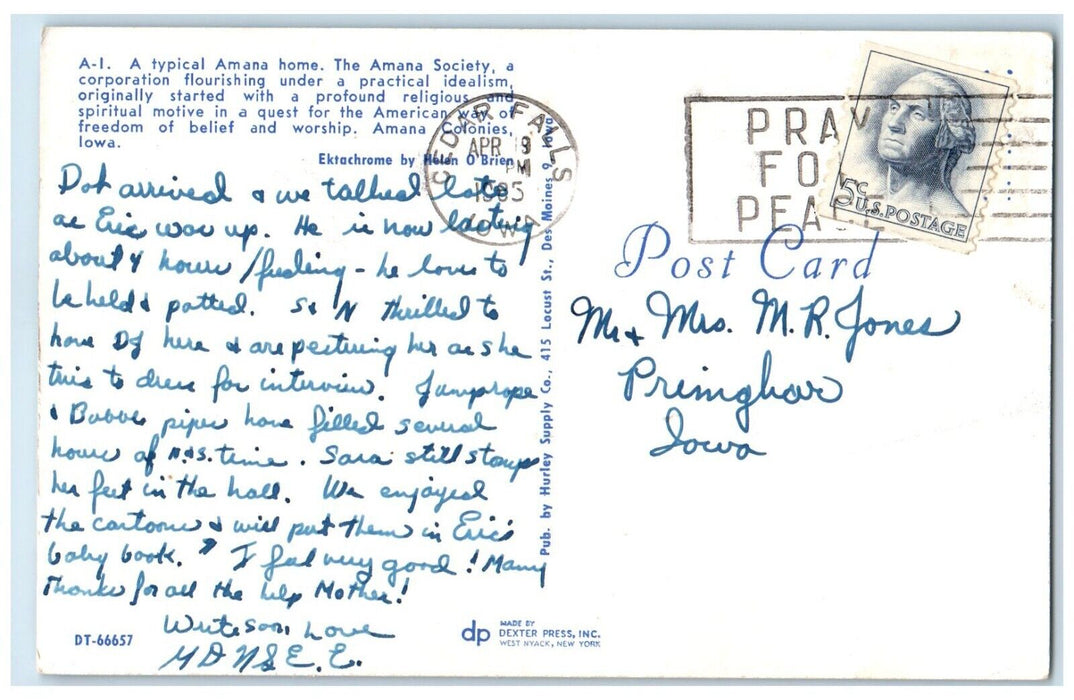 A-1. A typical Amana home. The Amana Society, a
corporation flourishing under a practical idealism,
originally started with a profound religious and
spiritual motive in a quest for the American way of
freedom of belief and worship. Amana Colonies,
Iowa.
Ektachrome by Helen O'Brien
Dot arrived & we talked late
as Eric was up. He is now lasting
about 4 hours/feeding - he loves to
be held & patted. S & N thrilled to
have DJ here & are pestering her as she
tries to dress for interview. Jumprope
& Bubble pipes have filled several
hours of N.&S. time. Sara still stomps
her feet in the hall. We enjoyed
the cartoons & will put them in Eric's
baby book. I feel very good! Many
Thanks for all the help Mother!
Write soon, Love
M D N S E. E.
DT-66657
Pub. by Hurley Supply Co., 415 Locust St., Des Moines 9, Iowa
dp MADE BY
DEXTER PRESS, INC.
WEST NYACK, NEW YORK
CEDAR FALLS
APR 19
PM
1965
IOWA
PRAY
FOR
PEACE
5c
U.S. POSTAGE
Post Card
Mr & Mrs. M. R. Jones
Primghar
Iowa